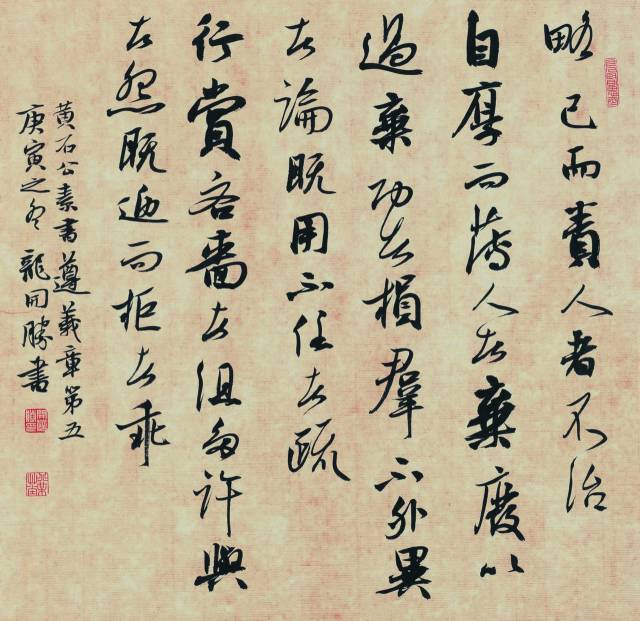 略己而責人者不治
自厚而薄人者棄廢以
過棄功者損羣下外異
者論既用不任者疏
行賞吝嗇者沮多許與
者怨既迎而拒者乖
黃石公素書遵義章第五
庚寅之冬龍開勝書